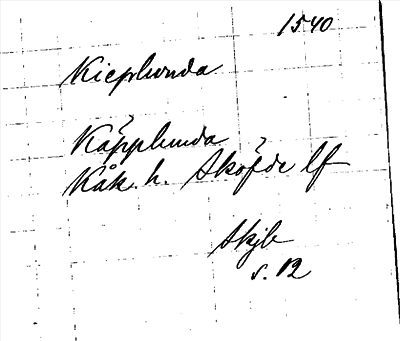 1540
Kieplunda
Käpplunda
Kåk. h. Sköfde lf
Skjb
s. 12